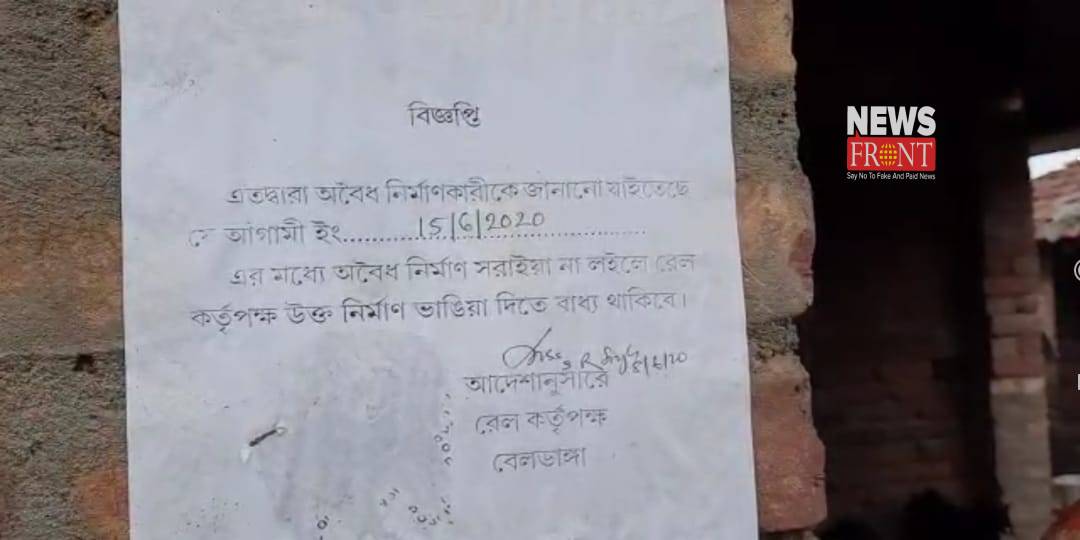 বিজ্ঞপ্তি
এতদ্বারা অবৈধ নির্মাণকারীকে জানানো যাইতেছে
যে আগামী ইং..............15/6/2020..............
এর মধ্যে অবৈধ নির্মাণ সরাইয়া না লইলে রেল
কর্তৃপক্ষ উক্ত নির্মাণ ভাঙিয়া দিতে বাধ্য থাকিবে।
আদেশানুসারে
রেল কর্তৃপক্ষ
বেলডাঙ্গা
NEWS
FRONT
Say No To Fake And Paid News